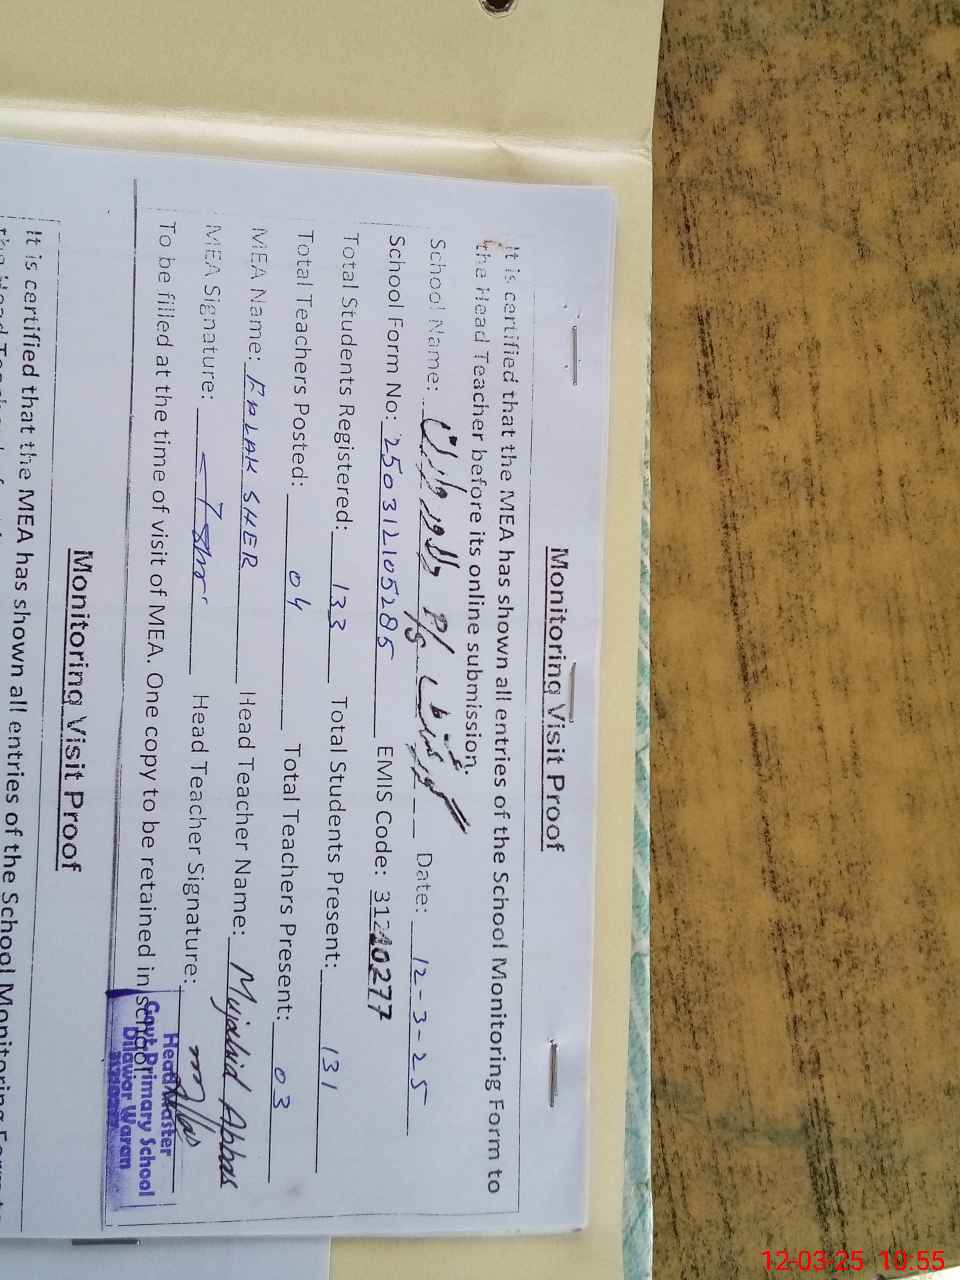 Monitoring Visit Proof
It is certified that the MEA has shown all entries of the School Monitoring Form to
the Head Teacher before its online submission.
School Name: P/S Date: 12-3-25
School Form No: 250312105285 EMIS Code: 31210277
Total Students Registered: 133 Total Students Present: 131
Total Teachers Posted: 04 Total Teachers Present: 03
MEA Name: SHER Head Teacher Name: Mujahid Abbas
MEA Signature: Head Teacher Signature:
To be filled at the time of visit of MEA. One copy to be retained in school.
Head Master
Govt Primary School
Dilawar Waran
Monitoring Visit Proof
It is certified that the MEA has shown all entries of the School Monitoring Form
12-03-25 10:55